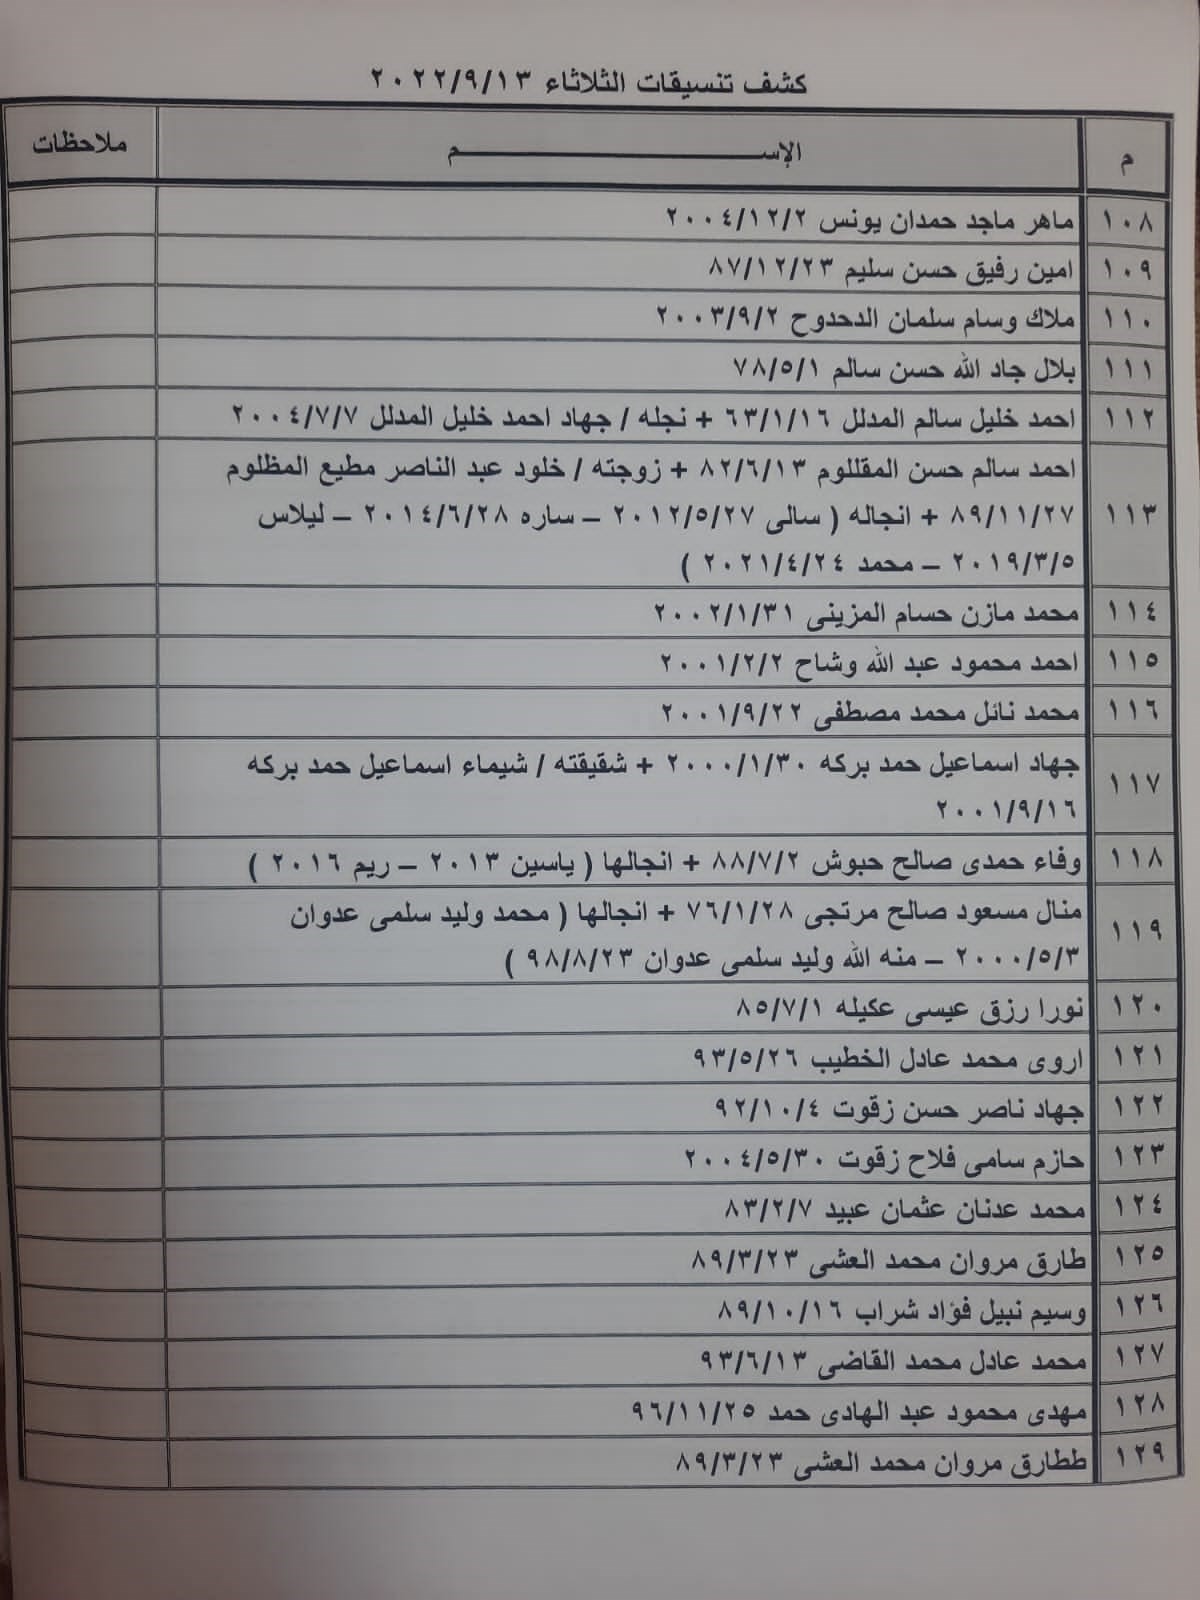 كشف تنسيقات الثلاثاء ٢٠٢٢/٩/١٣
م الإســـــــــــــــــــم ملاحظات
١٠٨ ماهر ماجد حمدان يونس ٢٠٠٤/١٢/٢
١٠٩ امين رفيق حسن سليم ٨٧/١٢/٢٣
١١٠ ملاك وسام سلمان الدحدوح ٢٠٠٣/٩/٢
١١١ بلال جاد الله حسن سالم ٧٨/٥/١
١١٢ احمد خليل سالم المدلل ٦٣/١/١٦ + نجله / جهاد احمد خليل المدلل ٢٠٠٤/٧/٧
١١٣ احمد سالم حسن المقللوم ٨٢/٦/١٣ + زوجته / خلود عبد الناصر مطيع المظلوم
٨٩/١١/٢٧ + انجاله ( سالى ٢٠١٢/٥/٢٧ – ساره ٢٠١٤/٦/٢٨ – ليلاس
٢٠١٩/٣/٥ – محمد ٢٠٢١/٤/٢٤ )
١١٤ محمد مازن حسام المزينى ٢٠٠٢/١/٣١
١١٥ احمد محمود عبد الله وشاح ٢٠٠١/٢/٢
١١٦ محمد نائل محمد مصطفى ٢٠٠١/٩/٢٢
١١٧ جهاد اسماعيل حمد بركه ٢٠٠٠/١/٣٠ + شقيقته / شيماء اسماعيل حمد بركه
٢٠٠١/٩/١٦
١١٨ وفاء حمدى صالح حبوش ٨٨/٧/٢ + انجالها ( ياسين ٢٠١٣ – ريم ٢٠١٦ )
١١٩ منال مسعود صالح مرتجى ٧٦/١/٢٨ + انجالها ( محمد وليد سلمى عدوان
٢٠٠٠/٥/٣ – منه الله وليد سلمى عدوان ٩٨/٨/٢٣ )
١٢٠ نورا رزق عيسى عكيله ٨٥/٧/١
١٢١ اروى محمد عادل الخطيب ٩٣/٥/٢٦
١٢٢ جهاد ناصر حسن زقوت ٩٢/١٠/٤
١٢٣ حازم سامى فلاح زقوت ٢٠٠٤/٥/٣٠
١٢٤ محمد عدنان عثمان عبيد ٨٣/٢/٧
١٢٥ طارق مروان محمد العشى ٨٩/٣/٢٣
١٢٦ وسيم نبيل فؤاد شراب ٨٩/١٠/١٦
١٢٧ محمد عادل محمد القاضى ٩٣/٦/١٣
١٢٨ مهدى محمود عبد الهادى حمد ٩٦/١١/٢٥
١٢٩ ططارق مروان محمد العشى ٨٩/٣/٢٣